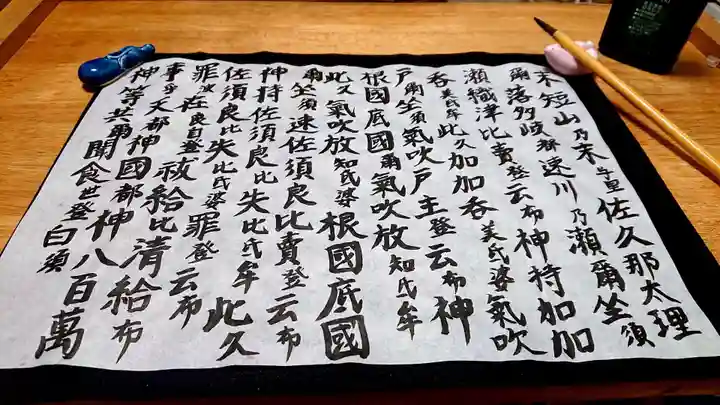 末短山乃末与里佐久那太理
爾落多岐都速川乃瀬爾坐須
瀬織津比賣登云布神持加加
呑美氐牟此久加加呑美氐婆氣吹
戸爾坐須氣吹戸主登云布神
根國底國爾氣吹放知氐牟
此久氣吹放知氐婆根國底國
爾坐須速佐須良比賣登云布
神持佐須良比失比氐牟此久
佐須良比失比氐婆罪登云布
罪波在良自登祓給比清給布
事乎天都神國都神八百萬
神等共爾聞食世登白須